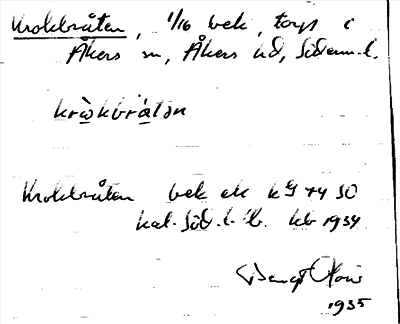 Krokbråten, 1/16 bek, torp i
Åkers sn, Åkers hd, Söderm. l.
krò̀kbrǻtən
Krokbråten bek ek kg 74 SO
kal. Söd. l. kb 1934
Bengt
1935